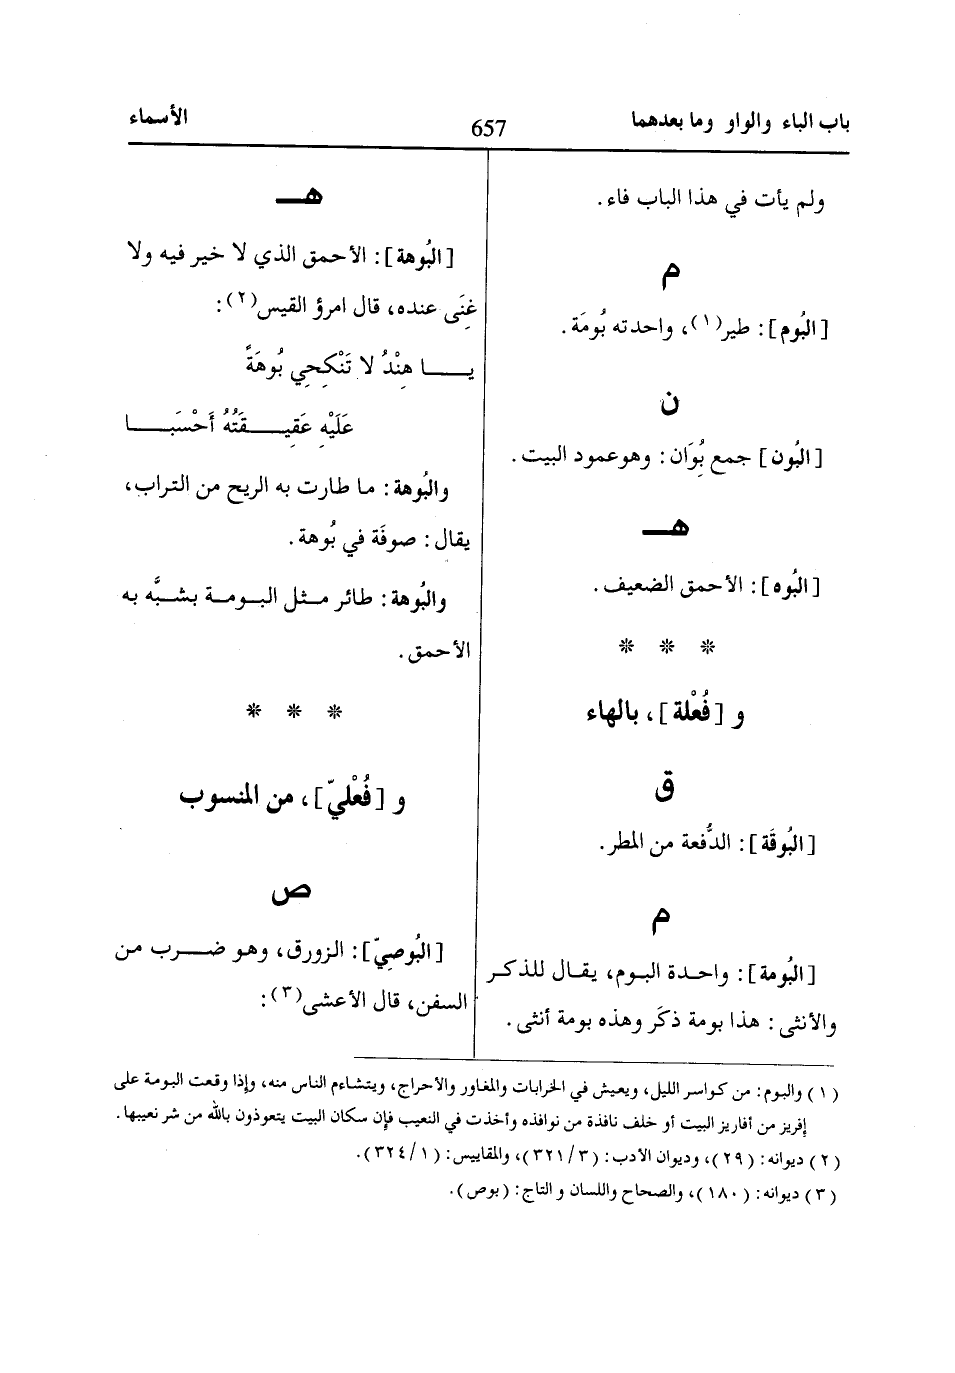 باب الباء والواو وما بعدهما
657
الأسماء
ولم يأت في هذا الباب فاء.
م
[البُوم]: طير(١)، واحدته بُومَة.
ن
[البُون] جمع بُوَان: وهوعمود البيت.
هـ
[البُوه]: الأحمق الضعيف.
* * *
و [فُعْلة]، بالهاء
ق
[البُوقَة]: الدُّفعة من المطر.
م
[البُومة]: واحدة البوم، يقال للذكر
والأنثى: هذا بومة ذكَر وهذه بومة أنثى.
هـ
[البُوهة]: الأحمق الذي لا خير فيه ولا
غِنَى عنده، قال امرؤ القيس(٢):
يا هِنْدُ لا تَنْكِحِي بُوهَةً
عَلَيْهِ عَقِيقَتُهُ أَحْسَبَا
والبُوهة: ما طارت به الريح من التراب،
يقال: صوفَة في بُوهة.
والبُوهة: طائر مثل البومة بشبَّه به
الأحمق.
* * *
و [فُعْليّ]، من المنسوب
ص
[البُوصِيّ]: الزورق، وهو ضرب من
السفن، قال الأعشى(٣):
(١) والبوم: من كواسر الليل، ويعيش في الخرابات والمغاور والأحراج، ويتشاءم الناس منه، وإذا وقعت البومة على
إفريز من أفاريز البيت أو خلف نافذة من نوافذه وأخذت في النعيب فإن سكان البيت يتعوذون بالله من شر نعيبها.
(٢) ديوانه: (٢٩)، وديوان الأدب: (٣٢١/٣)، والمقاييس: (٣٢٤/١).
(٣) ديوانه: (١٨٠)، والصحاح واللسان و التاج: (بوص).